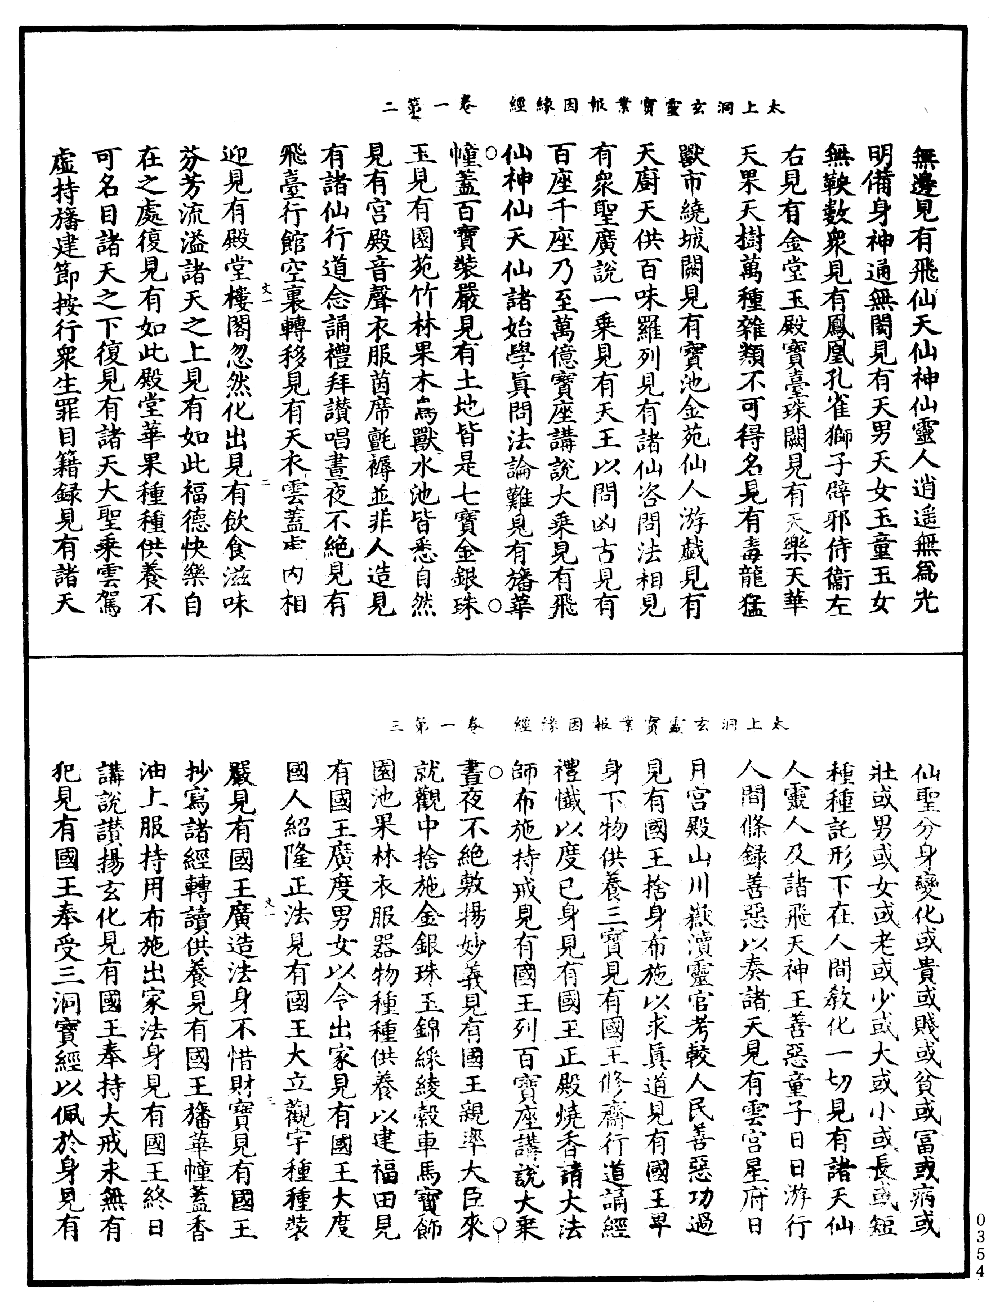 太上洞玄靈寶業報因緣經　卷一第二
無邊見有飛仙天仙神仙靈人逍遥無爲光
明備身神通無閡見有天男天女玉童玉女
無鞅數衆見有鳳凰孔雀獅子辟邪侍衞左
右見有金堂玉殿寶臺珠闕見有天樂天華
天果天樹萬種雜類不可得名見有毒龍猛
獸帀繞城闕見有寶池金苑仙人游戲見有
天廚天供百味羅列見有諸仙咨問法相見
有衆聖廣說一乘見有天王以問凶古見有
百座千座乃至萬億寶座講說大乘見有飛
仙神仙天仙諸始學眞問法論難見有旛華
幢蓋百寶裝嚴見有土地皆是七寶金銀珠
玉見有園苑竹林果木鳥獸水池皆悉自然
見有宮殿音聲衣服茵席氈褥並非人造見
有諸仙行道念誦禮拜讃唱晝夜不絶見有
飛臺行館空裏轉移見有天衣雲蓋虚内相
迎見有殿堂樓閣忽然化出見有飲食滋味
芬芳流溢諸天之上見有如此福德快樂自
在之處復見有如此殿堂華果種種供養不
可名目諸天之下復見有諸天大聖乘雲駕
虚持旛建節按行衆生罪目籍録見有諸天
太上洞玄靈寶業報因緣經　卷一第三
仙聖分身變化或貴或賤或貧或冨或病或
壯或男或女或老或少或大或小或長或短
種種託形下在人間教化一切見有諸天仙
人靈人及諸飛天神王善惡童子日日游行
人間條録善惡以奏諸天見有雲宮星府日
月宮殿山川嶽瀆靈官考較人民善惡功過
見有國王捨身布施以求眞道見有國王卑
身下物供養三寶見有國王修齋行道誦經
禮懺以度己身見有國王正殿燒香請大法
師布施持戒見有國王列百寶座講說大乘
晝夜不絶敷揚妙義見有國王親率大臣來
就觀中捨施金銀珠玉錦綵綾縠車馬寶飾
園池果林衣服器物種種供養以建福田見
有國王廣度男女以令出家見有國王大度
國人紹隆正法見有國王大立觀宇種種裝
嚴見有國王廣造法身不惜財寶見有國王
抄寫諸經轉讀供養見有國王旛華幢蓋香
油上服持用布施出家法身見有國王終日
講說讃揚玄化見有國王奉持大戒未無有
犯見有國王奉受三洞寶經以佩於身見有
0354